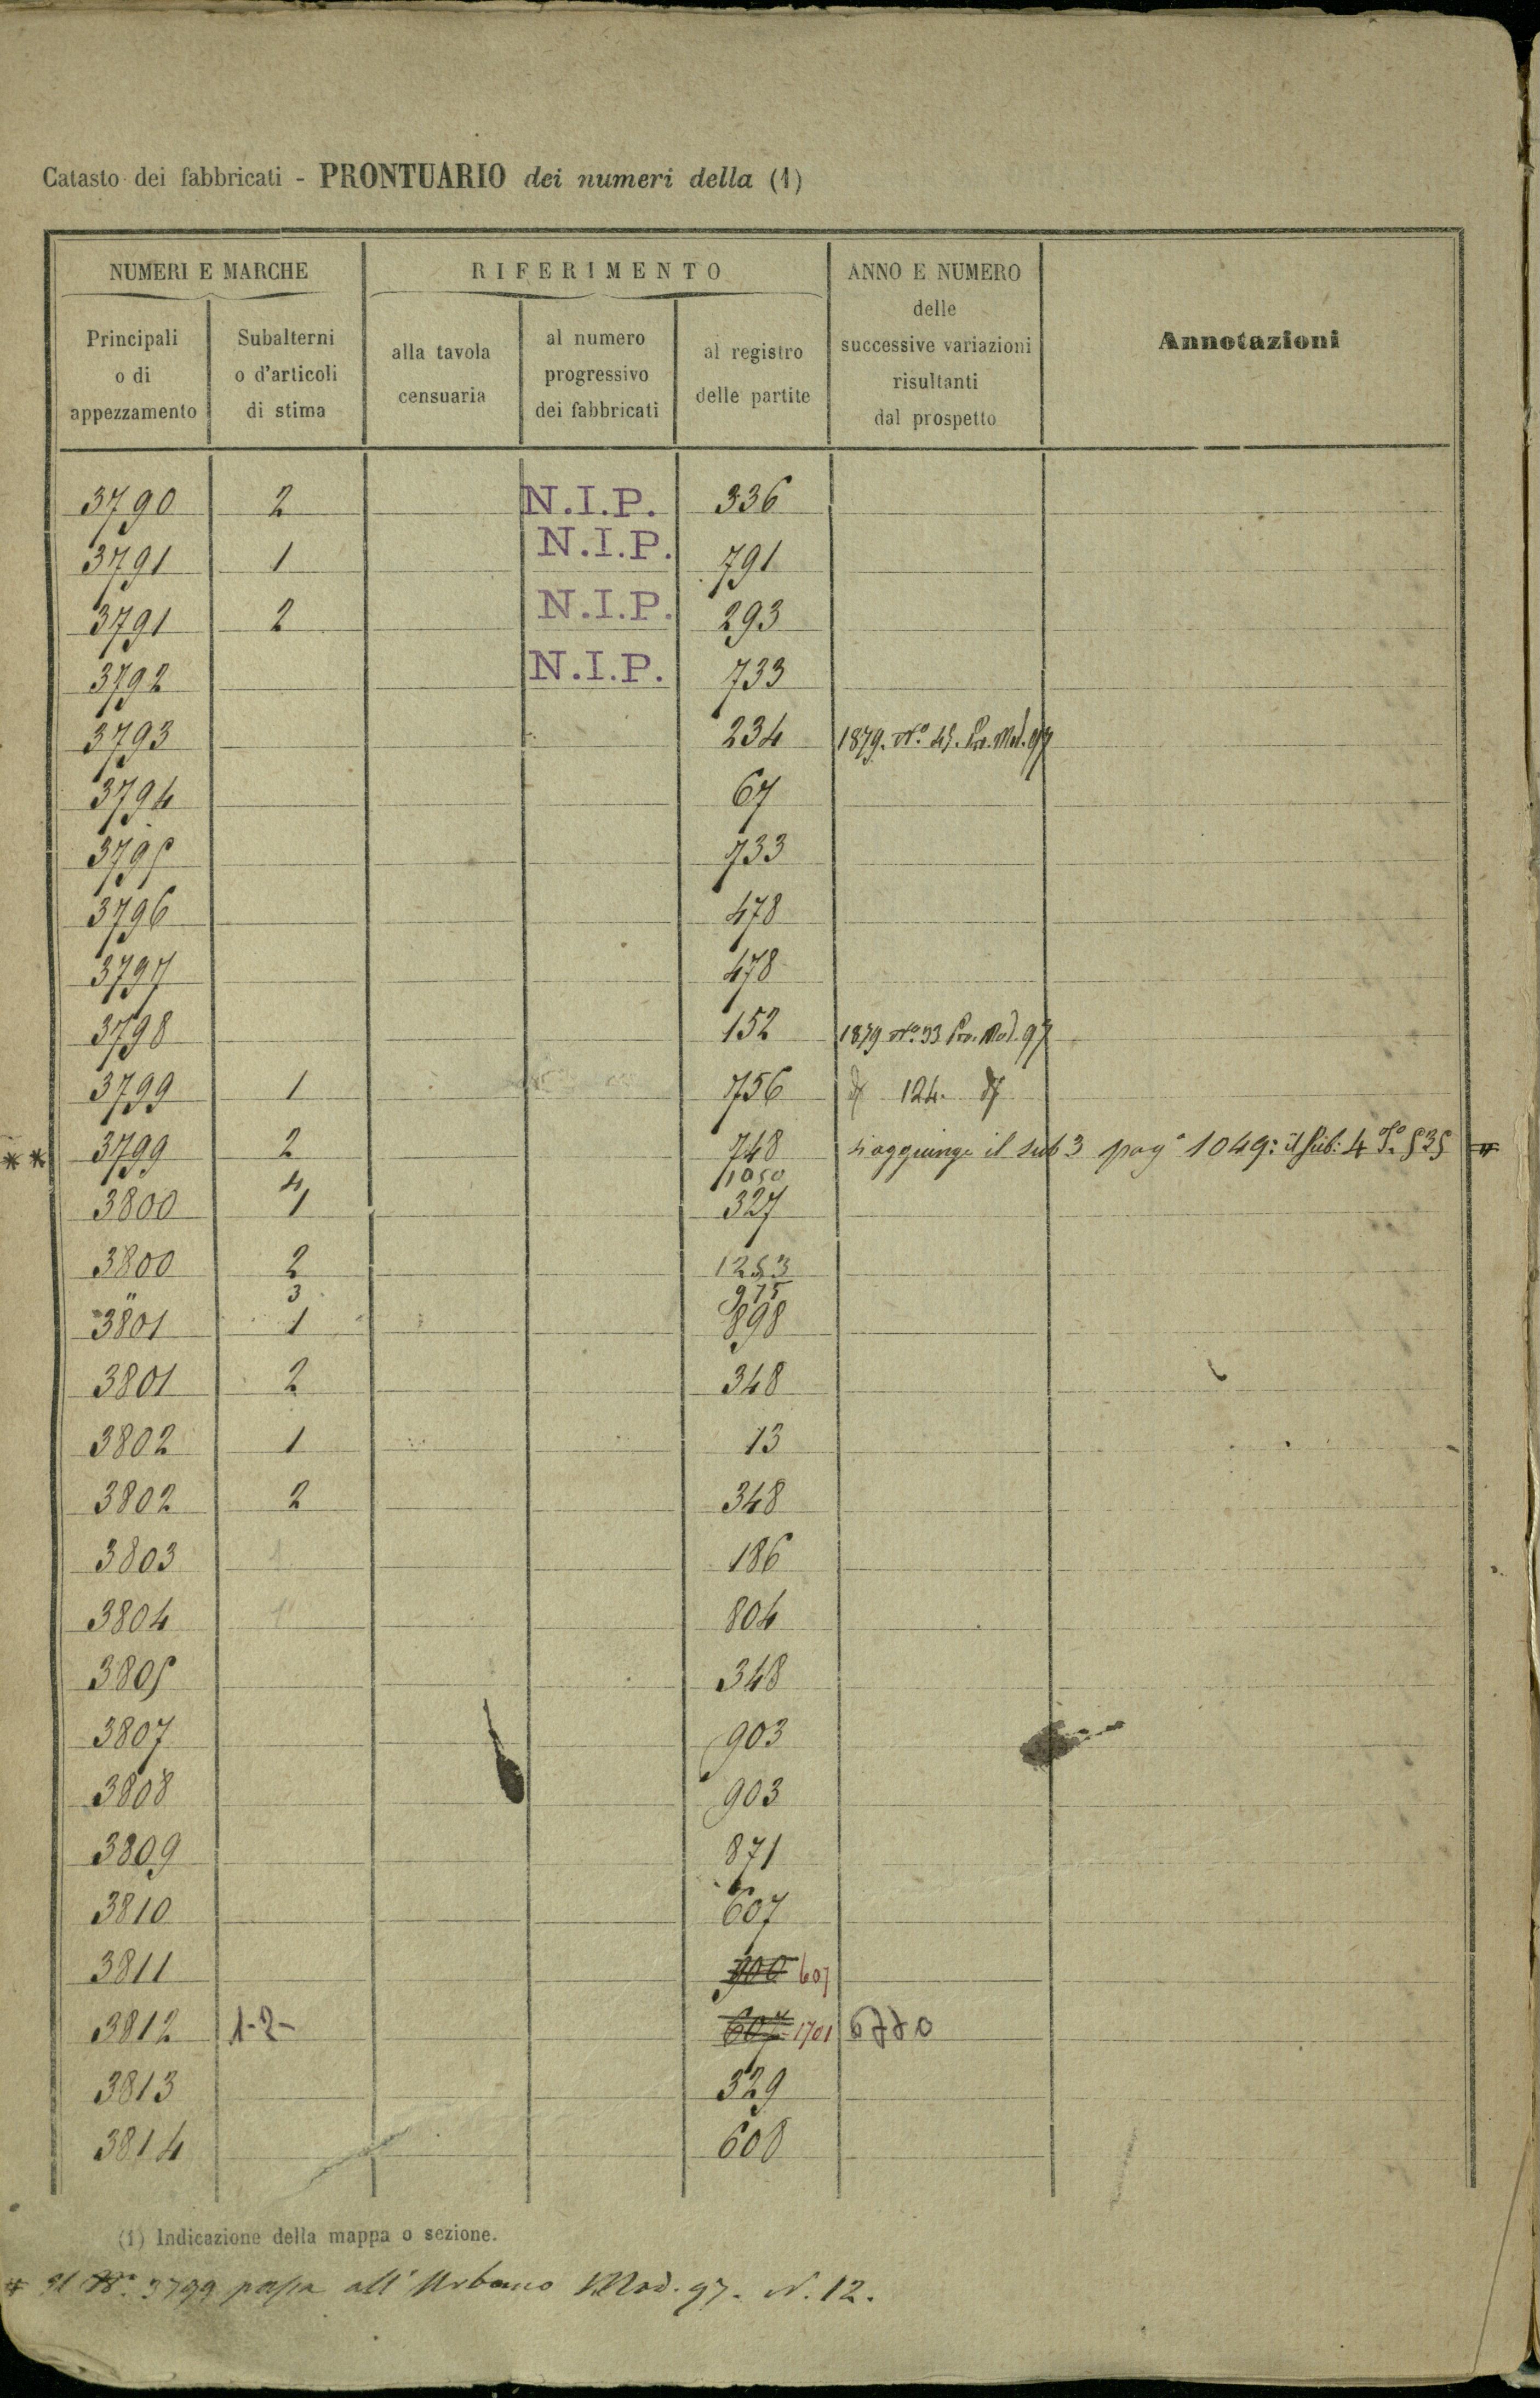 Catasto dei fabbricati - PRONTUARIO dei numeri della (1)
NUMERI E MARCHE RIFERIMENTO ANNO E NUMERO delle successive variazioni risultanti dal prospetto Annotazioni
Principali o di appezzamento Subalterni o d'articoli di stima alla tavola censuaria al numero progressivo dei fabbricati al registro delle partite
3790 2 N.I.P. 336
3791 1 N.I.P. 791
3791 2 N.I.P. 293
3792 N.I.P. 733
3793 234 1879. No. 45. Pro. Mod. 97
3794 67
3795 733
3796 478
3797 478
3798 152 1879 No. 93 Pro. Mod. 97
3799 1 756 124.
** 3799 2 748 si aggiunge il sub 3 pag. 1049: il sub: 4 Fo. 535 #
4 1050
3800 1 327
3800 2 1253
" 3 975
3801 1 898
3801 2 348
3802 1 13
3802 2 348
3803 1 186
3804 1 804
3805 348
3807 903
3808 903
3809 871
3810 607
3811 900 607
3812 1-2- 607 1701 6770
3813 329
3814 608
(1) Indicazione della mappa o sezione.
# Il No. 3799 passa all'Urbano Mod. 97. N. 12.